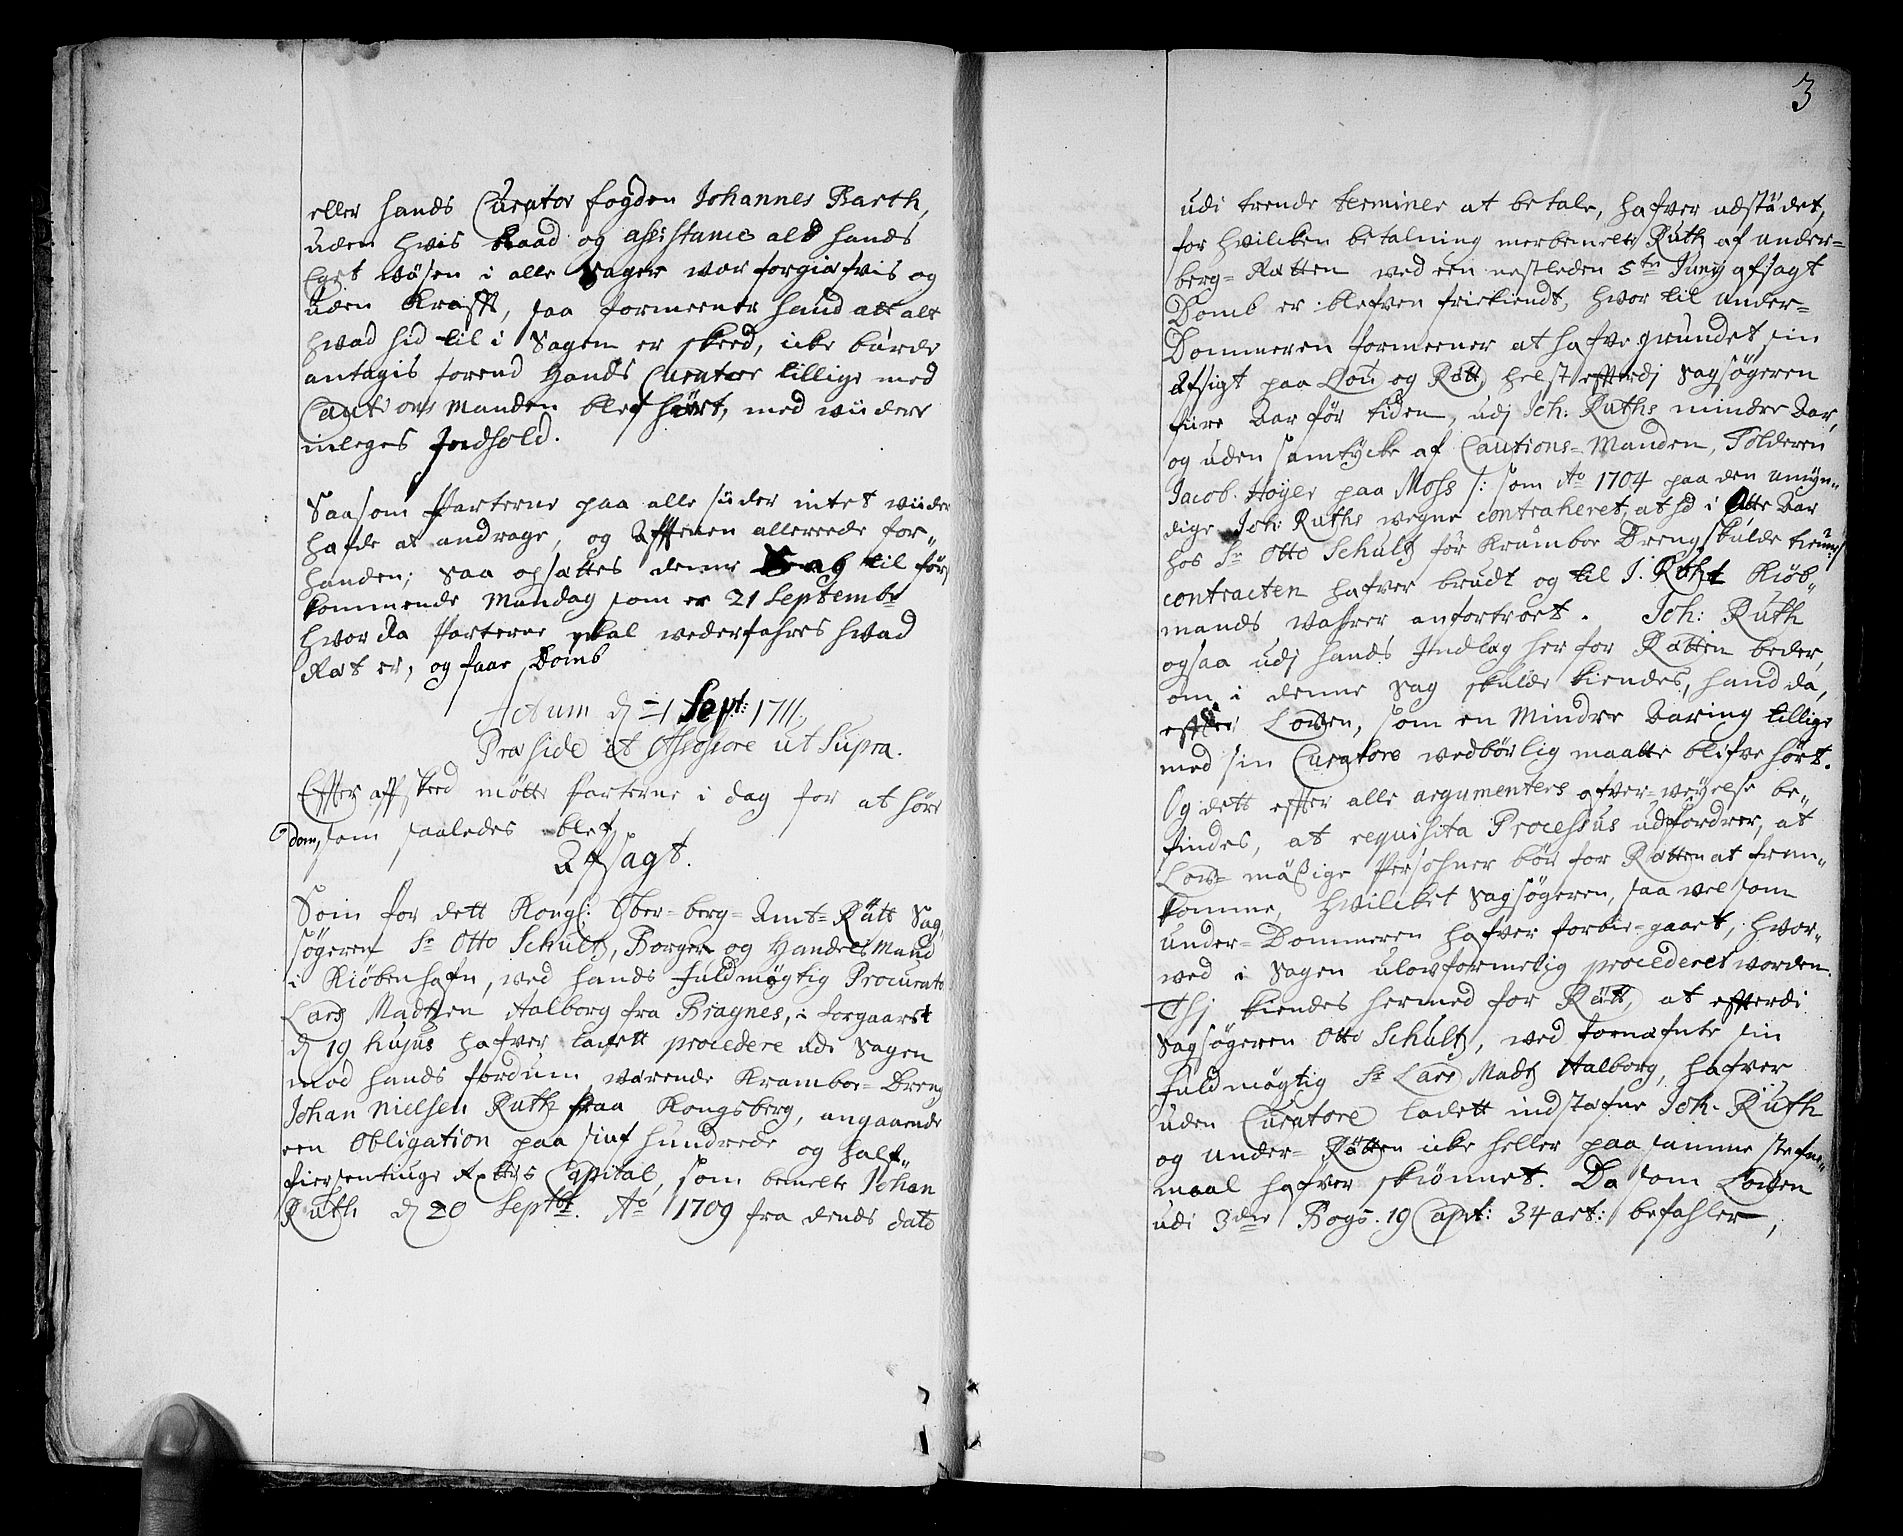 eller hands Curator fogden Johannes Barth,
uden hvis Raad og assistance alt hands
Eget wäsen i alle Sager war forgiæfvis og
uden Krafft, saa formeener hand att alt
hvad hid til i Sagen er skeed, icke burde
antagis forend Hands Curator tillige med
Cautions Manden blef hørt, med wiidere
inlegs Indhold.
Saasom Parterne paa alle siider intet wiider
hafde at andrage, og Afftenen allereede for„
handen; saa opsættes denne Sag til först
kommende Mandag som er 21 Septembr
hvor da Parterne skal wederfahres hvad
Ræt er, og faar Domb
Actum d 21 Sept: 1711,
Præside et Assessore ut Supra.
Effter affskeed mötte Parterne i dag for at höre
dom, som saaledes blef
Afsagt.
Som for dett Kongl: Ober-berg-Amt-Rätt Sag„
søgeren Sr Otto Schultz, Borger og Handels Mand
i Kiöbenhafn, ved hands fuldmögtig Procurator
Lars Madtzen Aalborg fra Bragnes, i forgaarst
d 19 hujus hafver ladett procedere udi Sagen
mod hands fordum værende Kramboe-Dreng
Johan Nielsen Ruth fraa Kongsberg, angaaende
een Obligation paa siuf hundrede og half„
fiersentiuge Rxdrs Capital, som bemelte Johan
Ruth d 20 Septbr. Ao 1709 fra dends dato
3
udi trende terminer at betale, hafver udstædet,
for hvilcken betalning merbemelte Ruth af under=
berg=Rætten ved een nestleden 5te Juny afsagt
Domb er blefven friekiendt, hvor til under=
Dommeren formeener at hafve grundet sin
Afsigt paa Lou og Rätt, helst efftterdj Sagsögeren
fiire Aar för tiden, udj Joh: Ruths mindre Aar,
og uden samtycke af Cautions=Manden, Tolderen
Jacob Höyer paa Moss /: som Ao 1704 paa den umyn„
dige Joh: Ruths vegne contraheret, at hd i Otte Aar
hos Sr Otto Schultz for Kramboe Dreng skulde tiene :/
contracten hafver brudt og til J. Ruht Kiöb„
mands Wahrer anfortroet. Joh: Ruth
ogsaa udj hands Indlæg her for Rätten beder,
om i denne Sag skulde kiendes, hand da,
effter Lowen, som en Mindre Aaring tillige
med sin Curatore wedbörlig maatte blifve hört.
Og dett effter alle argumenters ofver-weyelse be„
findes, at requisita Processus udfordrer, at
Low=mässige Persohner bör for Rætten at frem„
komme, hvilcket Sagsögeren, saa vel som
under=Dommeren hafver forbie-gaaet, hvor„
wed i Sagen ulovformelig procederet worden.
Thj kiendes hermed for Rätt, at efterdi
Sagsögeren Otto Schultz, wed fornæfnte sin
fuldmögtig Sr Lars Madtz Aalborg, hafver
uden Curatore ladett indstæfne Joh. Ruth
og under-Rätten icke heller paa samme stefne„
maal hafver skiönnet. Da som Lowen
udi 3die Bogs. 19 Capit: 34 art: befahler,